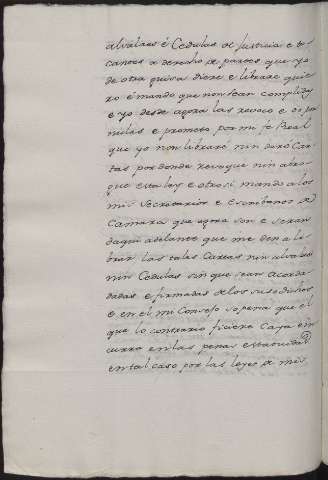 alvalaes é Cedulas de Justicia e to
canoes a derecho de partes que yo
de otra guisa diere e librare quie
ro é mando que non sean complidas
e yo desde agora las revoco e do por
nulas e prometo por mi fe Real
que yo non librare nin daré Car
tas por donde revoque nin abro
gue esta ley e otrosi mando a los
mis Secretarios e Escribanos de
Camara que agora son e seran
daqui adelante que me den a li
brar las tales Cartas nin alvalaes
nin Cedulas sin que sean Acorda
dadas e firmadas de los susodichos
e en el mi Consejo so pena que el
que lo contrario ficiere Caya e in
curra en las penas estatuidas
en tal caso por las leyes de mis